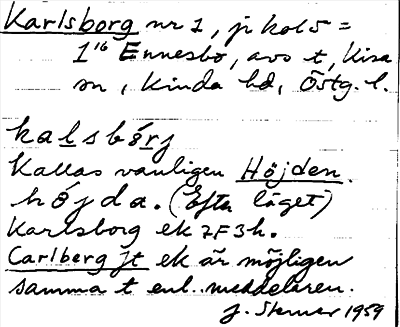 Karlsborg nr 1, jr kol 5 =
1¹⁶ Ennesbo, avs t, Kisa
sn, Kinda hd, Östg. l.
kalsbórj
Kallas vanligen Höjden.
höjda. (Efter läget)
Karlsborg ek 7F3h.
Carlberg Jt ek är möjligen
samma t enl. meddelaren.
J. Sterner 1959